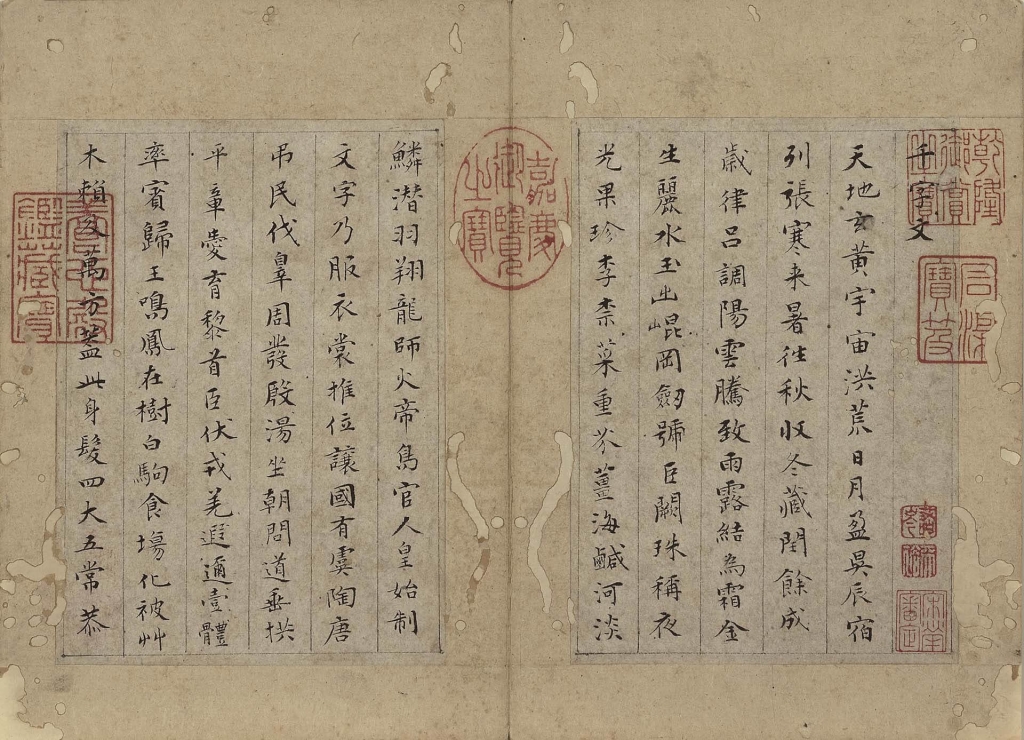 千字文
天地玄黃宇宙洪荒日月盈昃辰宿
列張寒来暑往秋收冬藏閏餘成
歲律呂調陽雲騰致雨露結為霜金
生麗水玉出崐岡劒號巨闕珠稱夜
光果珍李柰菜重芥薑海鹹河淡
鱗潛羽翔龍師火帝鳥官人皇始制
文字乃服衣裳推位讓國有虞陶唐
弔民伐辠周發殷湯坐朝問道垂拱
平章愛育黎首臣伏戎羌遐邇壹體
率賓歸王鳴鳳在樹白駒食場化被艸
木賴及萬方蓋此身髮四大五常恭
乾隆御賞之寶
石渠寶笈
嘉慶御覽之寶